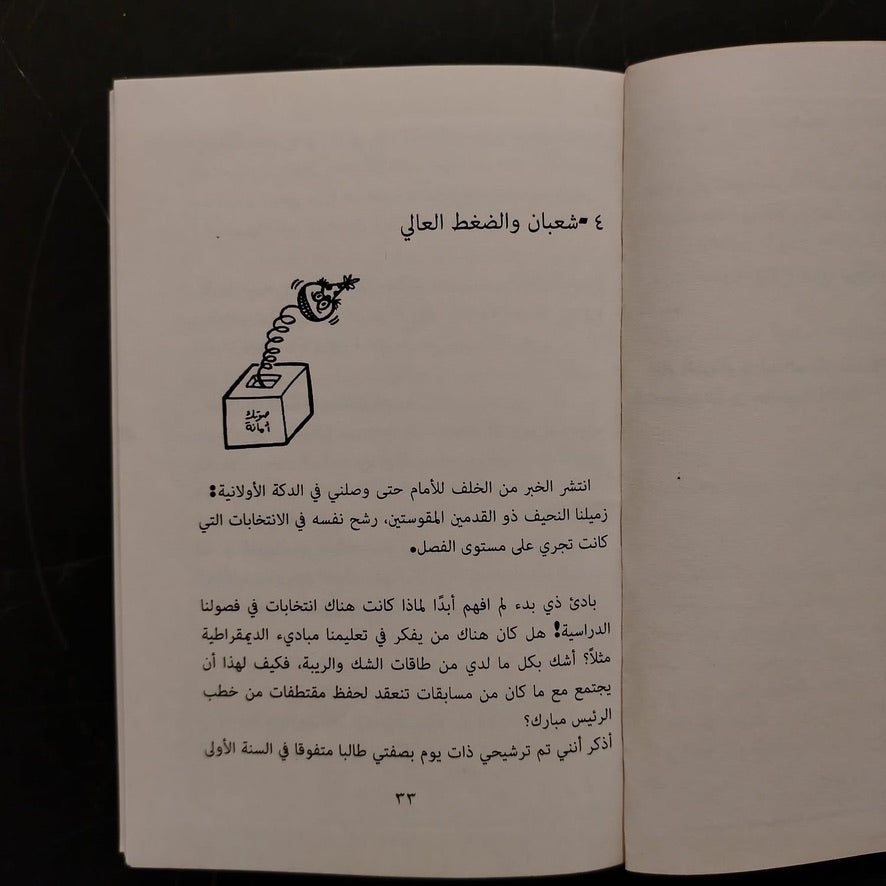 ٤ -شعبان والضغط العالي
صوتك
أمانة
انتشر الخبر من الخلف للأمام حتى وصلني في الدكة الأولانية:
زميلنا النحيف ذو القدمين المقوستين، رشح نفسه في الانتخابات التي
كانت تجري على مستوى الفصل.
بادئ ذي بدء لم افهم أبدًا لماذا كانت هناك انتخابات في فصولنا
الدراسية! هل كان هناك من يفكر في تعليمنا مباديء الديمقراطية
مثلاً؟ أشك بكل ما لدي من طاقات الشك والريبة، فكيف لهذا أن
يجتمع مع ما كان من مسابقات تنعقد لحفظ مقتطفات من خطب
الرئيس مبارك؟
أذكر أنني تم ترشيحي ذات يوم بصفتي طالبا متفوقا في السنة الأولى
٣٣